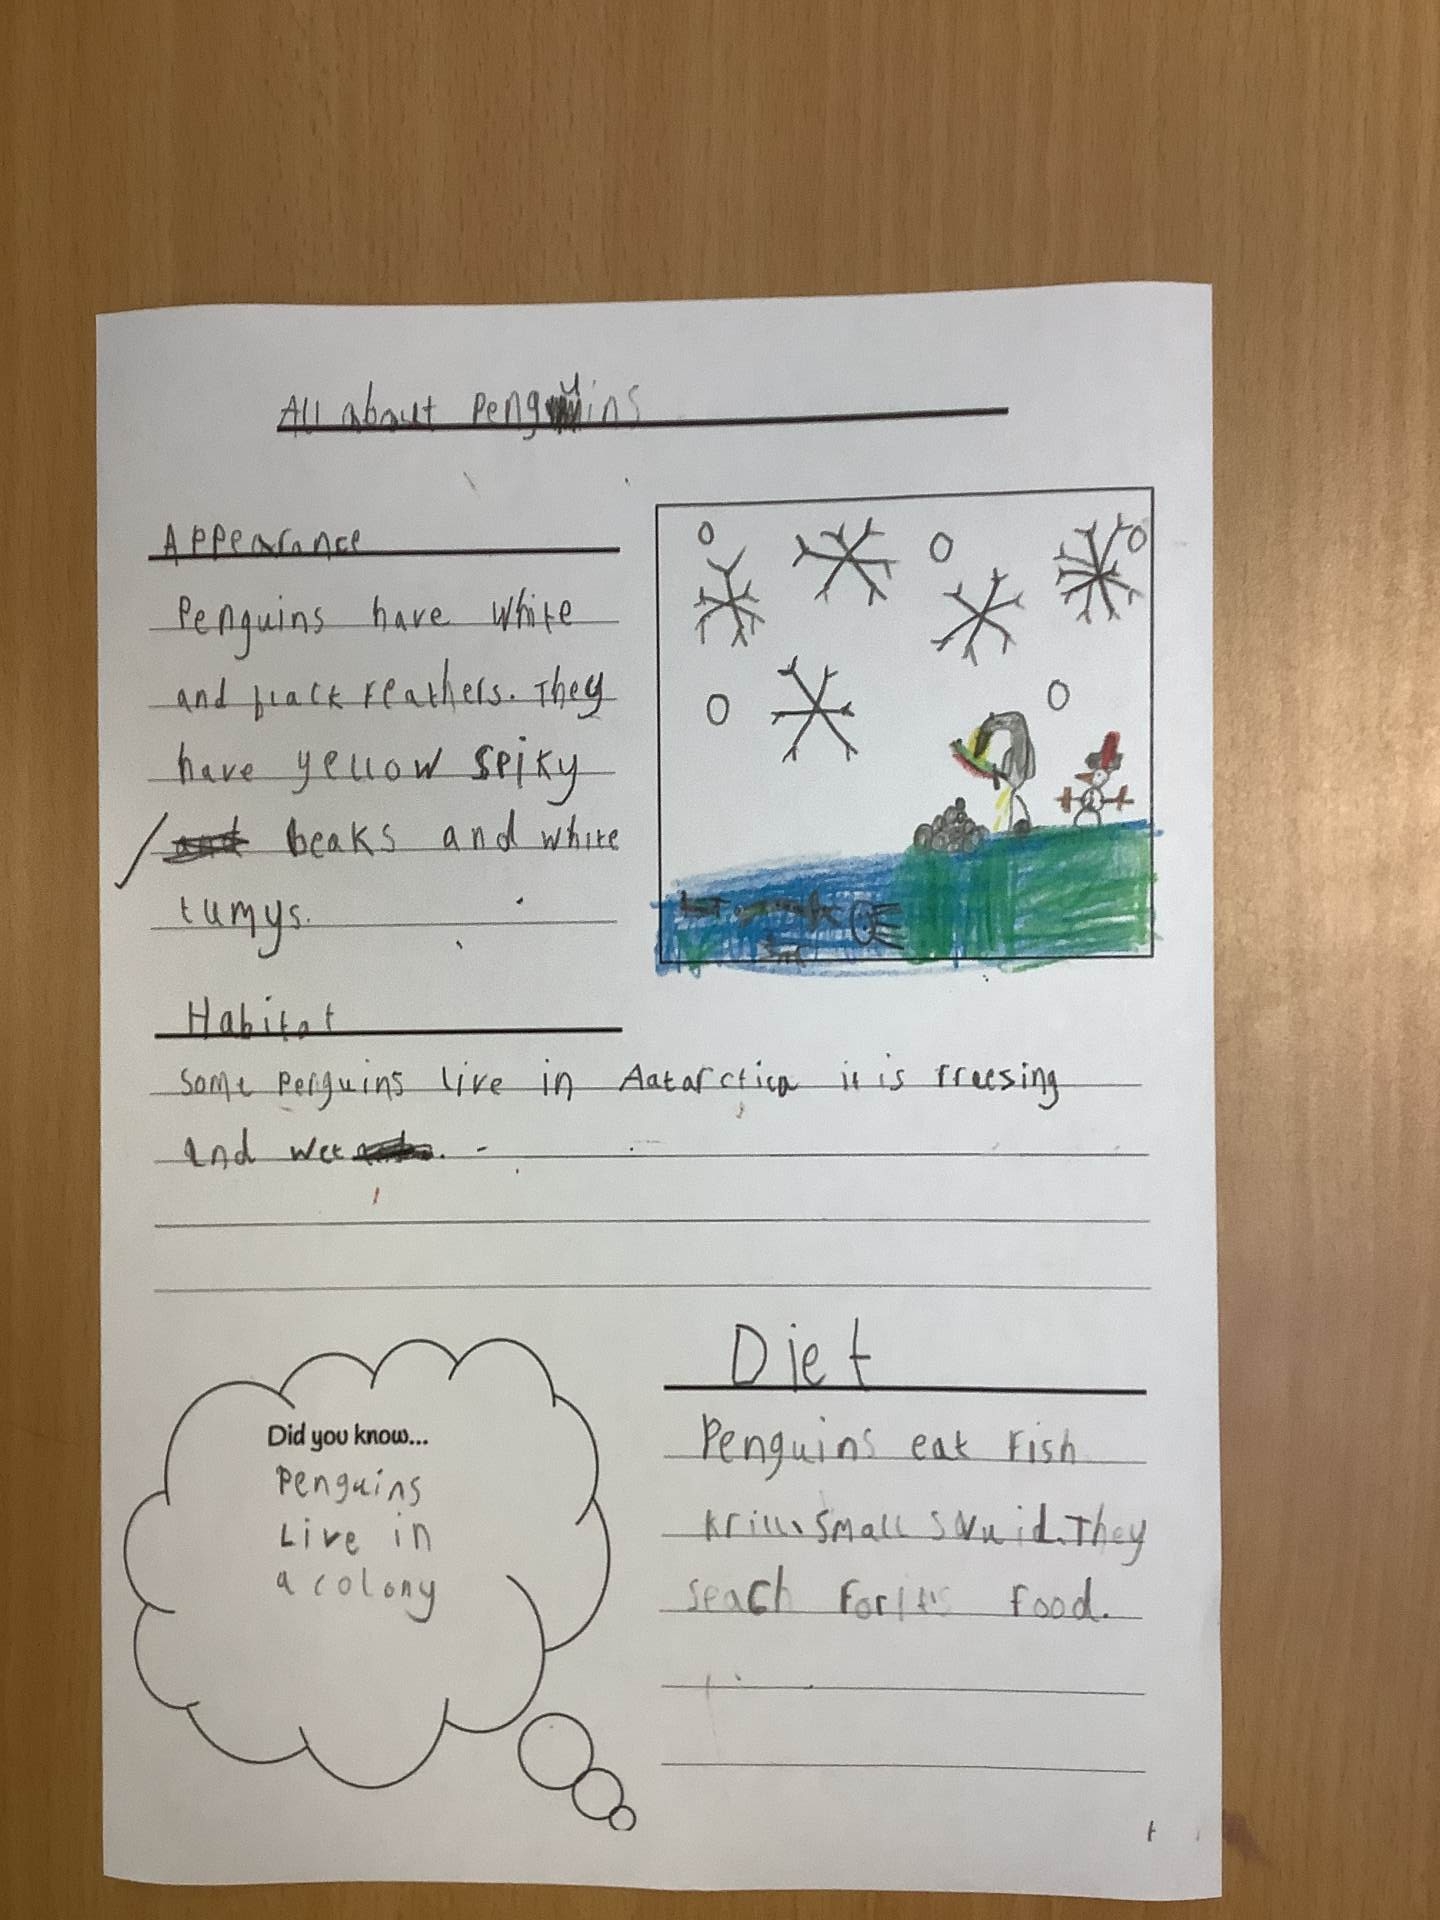 All about penguins
Appearance
Penguins have white
and black feathers. They
have yellow spiky
beaks and white
tumys.
Habitat
Some penguins live in Aatarctica it is freesing
and wet.
Did you know...
Penguins
Live in
a colony
Diet
Penguins eat Fish
krill, small squid. They
seach for its food.